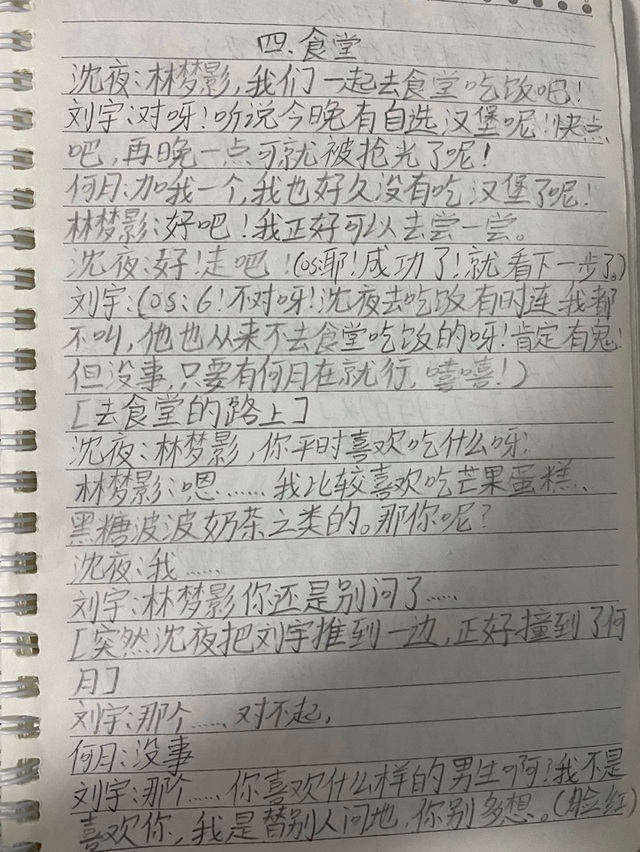 四.食堂
沈夜:林梦影,我们一起去食堂吃饭吧!
刘宇:对呀!听说今晚有自选汉堡呢!快点
吧,再晚一点可就被抢光了呢!
何月:加我一个,我也好久没有吃汉堡了呢!
林梦影:好吧!我正好可以去尝一尝。
沈夜:好!走吧!(os:耶!成功了!就看下一步了。)
刘宇:(os:6!不对呀!沈夜去吃饭有时连我都
不叫,他也从来不去食堂吃饭的呀!肯定有鬼!
但没事,只要有何月在就行,嘻嘻!)
[去食堂的路上]
沈夜:林梦影,你平时喜欢吃什么呀
林梦影:嗯……我比较喜欢吃芒果蛋糕、
黑糖波波奶茶之类的。那你呢?
沈夜:我……
刘宇:林梦影你还是别问了……
[突然沈夜把刘宇推到一边,正好撞到了何
月]
刘宇:那个……对不起,
何月:没事
刘宇:那个……你喜欢什么样的男生啊?我不是
喜欢你,我是替别人问地,你别多想。(脸红)